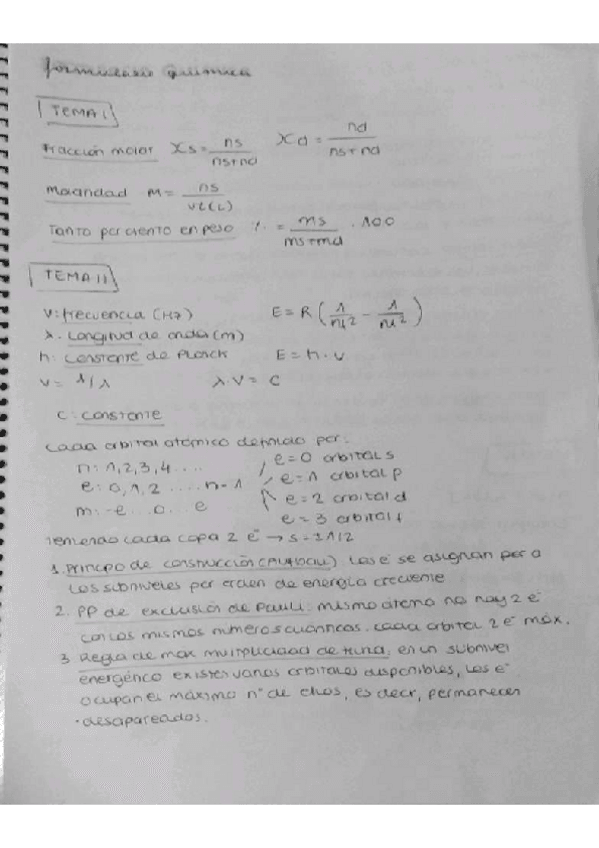 formulario química
TEMA I
Fracción molar Xs = ns/(ns+nd) Xd = nd/(ns+nd)
Molaridad M = ns/Vt(L)
Tanto por ciento en peso % = ms/(ms+md) · 100
TEMA II
ν: frecuencia (Hz) E = R (1/n₁² − 1/n₂²)
λ: Longitud de onda (m)
h: Constante de Planck E = h · ν
ν = 1/λ λ·ν = c
c: constante
Cada orbital atómico definido por:
n: 1, 2, 3, 4 ....
e: 0, 1, 2 ..... n-1
m: -e .. 0 .. e
e = 0 orbital s
e = 1 orbital p
e = 2 orbital d
e = 3 orbital f
teniendo cada capa 2 e⁻ → s = ±1/2
1. Principo de construcción (AUFBAU) Los e⁻ se asignan para
Los subniveles por orden de energía creciente
2. PP de exclusión de Pauli: mismo átomo no hay 2 e⁻
con los mismos números cuánticos. Cada orbital 2 e⁻ máx.
3. Regla de max multiplicidad de Hund: en un subnivel
energético existen varios orbitales disponibles, Los e⁻
ocupan el máximo nº de ellos, es decir, permanecen
desapareados.